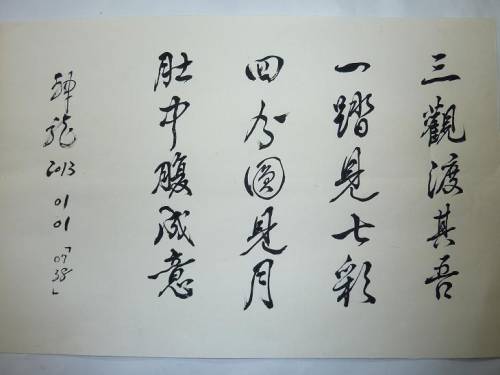 三觀渡其吾
一踏見七彩
四分圓見月
肚中腹成意
龍
2013
01
01
「07
38」